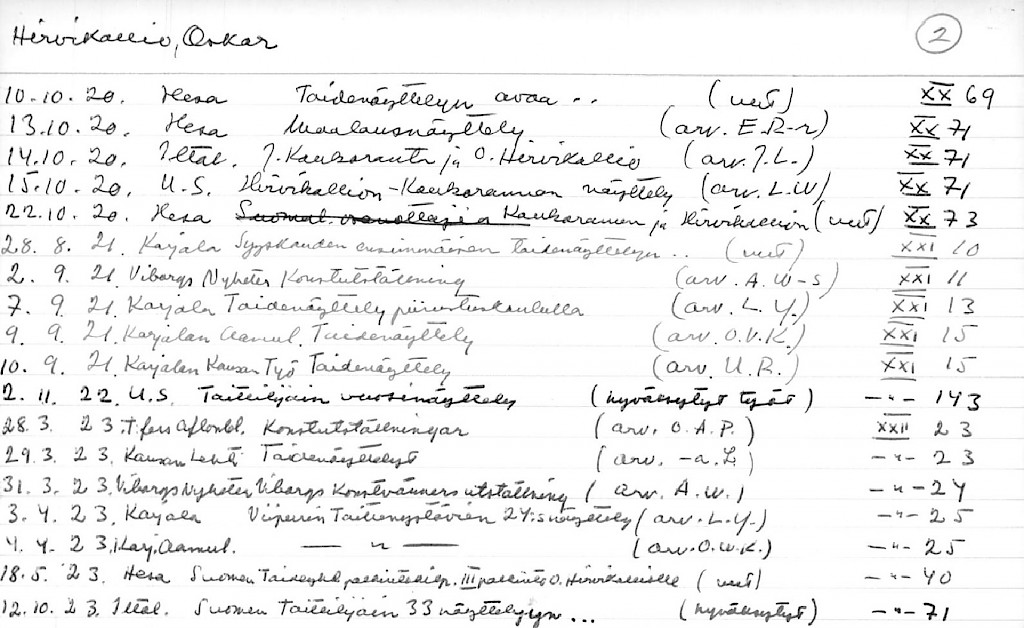 Hirvikallio, Oskar 2
10.10.20. Hesa Taidenäyttelyn avaa .. (uut) XX 69
13.10.20. Hesa Maalausnäyttely (arv. E.R-r) XX 71
14.10.20. Iltal. J. Kaukoranta ja O. Hirvikallio (arv. J.L.) XX 71
15.10.20. U.S. Hirvikallion-Kaukorannan näyttely (arv. L.W) XX 71
22.10.20. Hesa Kaukorannan ja Hirvikallion (uut) XX 73
28. 8. 21. Karjala Syyskauden ensimmäisen taidenäyttelyn .. (uut) XXI 10
2. 9. 21. Viborgs Nyheter Konstutställning (arv. A.W-s) XXI 11
7. 9. 21. Karjala Taidenäyttely piirustuskoululla (arv. L.Y.) XXI 13
9. 9. 21. Karjalan Aamul. Taidenäyttely (arv. O.V.K.) XXI 15
10. 9. 21. Karjalan Kansan Työ Taidenäyttely (arv. U.R.) XXI 15
2. 11. 22. U.S. Taiteilijain vuosinäyttely (hyväksytyt työt) -"- 143
28.3. 23. Konstutställningar (arv. O.A.P.) XXII 23
29.3. 23. Kansan Lehti Taidenäyttelyt (arv. -a.L) -"- 23
31. 3. 23. Viborgs Nyheter Viborgs Konstvänners utställning (arv. A.W.) -"- 24
3. 4. 23. Karjala Viipurin Taiteenystävien 24:s näyttely (arv. L.Y.) -"- 25
4. 4. 23. Karj. Aamul. — " — (arv. O.W.K.) -"- 25
18.5. 23. Hesa Suomen Taideyhd. palkintokilp. III palkinto O. Hirvikalliolle (uut) -"- 40
12.10. 23. Iltal. Suomen Taiteilijain 33 näyttelyyn... (hyväksytyt) -"- 71